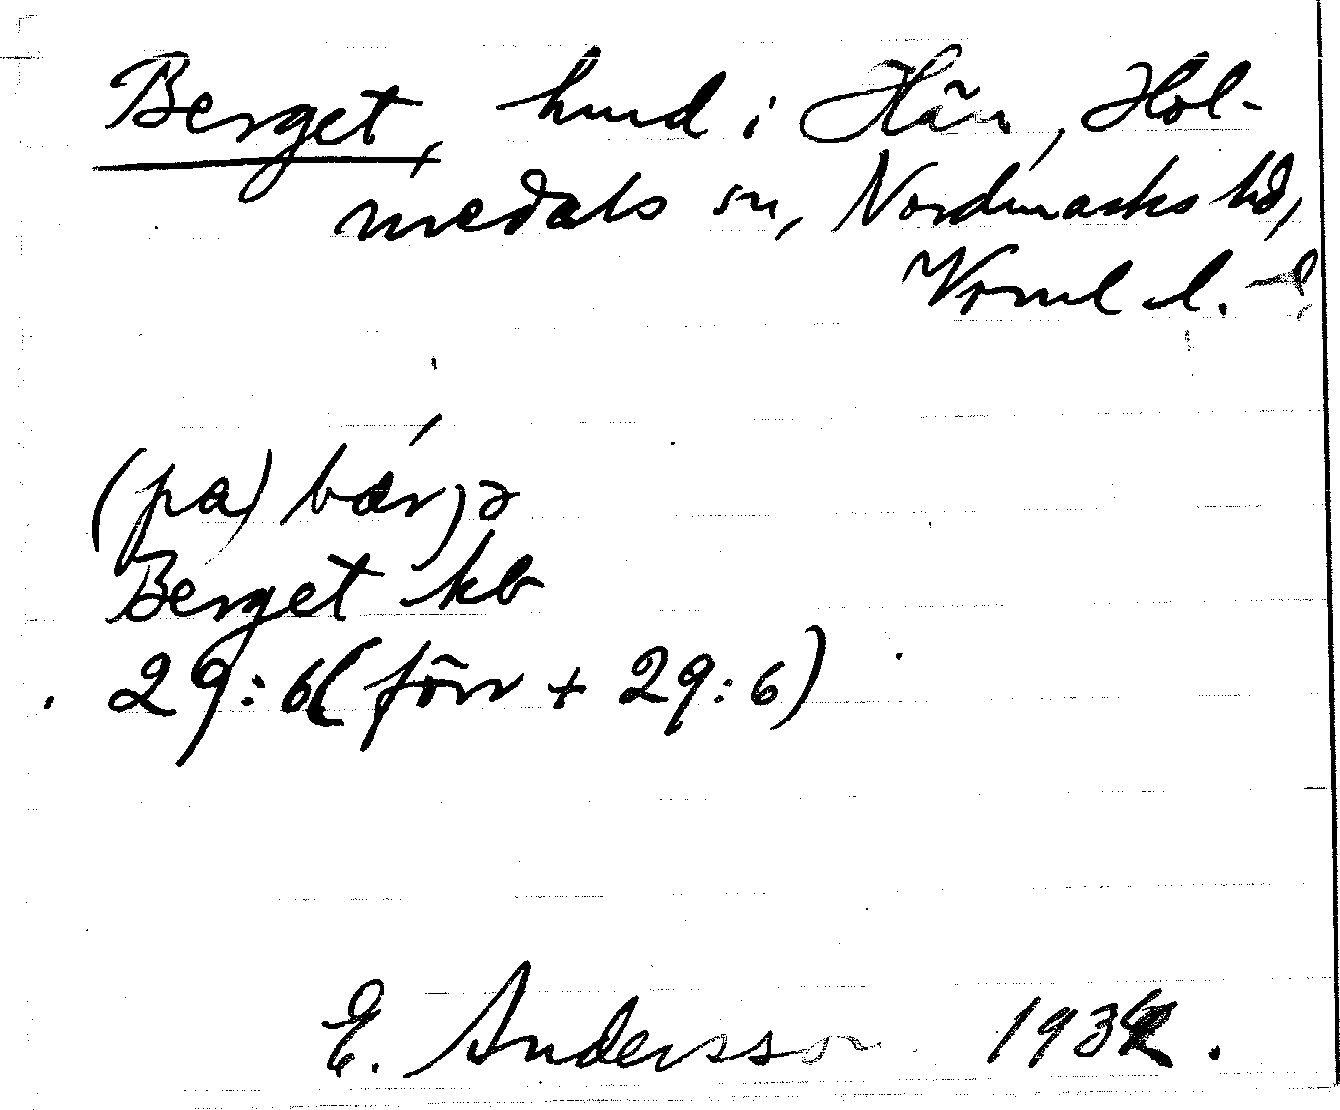 Berget, hmd i Hän, Hol-
medals sn, Nordmarks hd,
Vrml l.
(pa) bær̨ə
Berget kb
29:6 (förr + 29:6)
E. Andersson